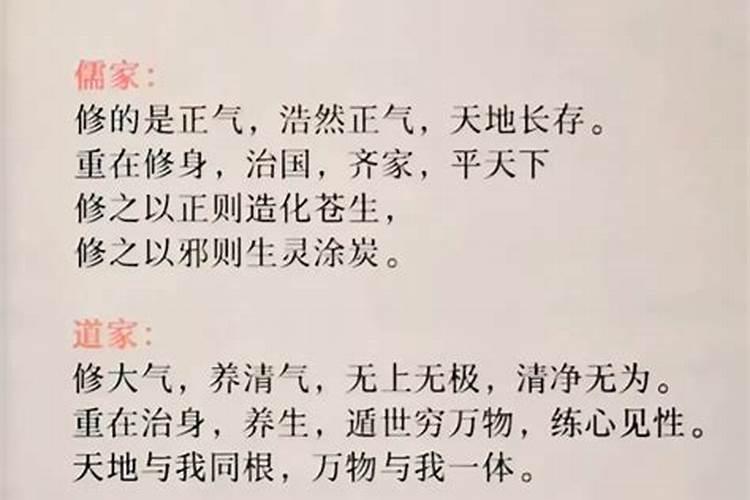 儒家：
修的是正气，浩然正气，天地长存。
重在修身，治国，齐家，平天下
修之以正则造化苍生，
修之以邪则生灵涂炭。
道家：
修大气，养清气，无上无极，清净无为。
重在治身，养生，遁世穷万物，练心见性。
天地与我同根，万物与我一体。